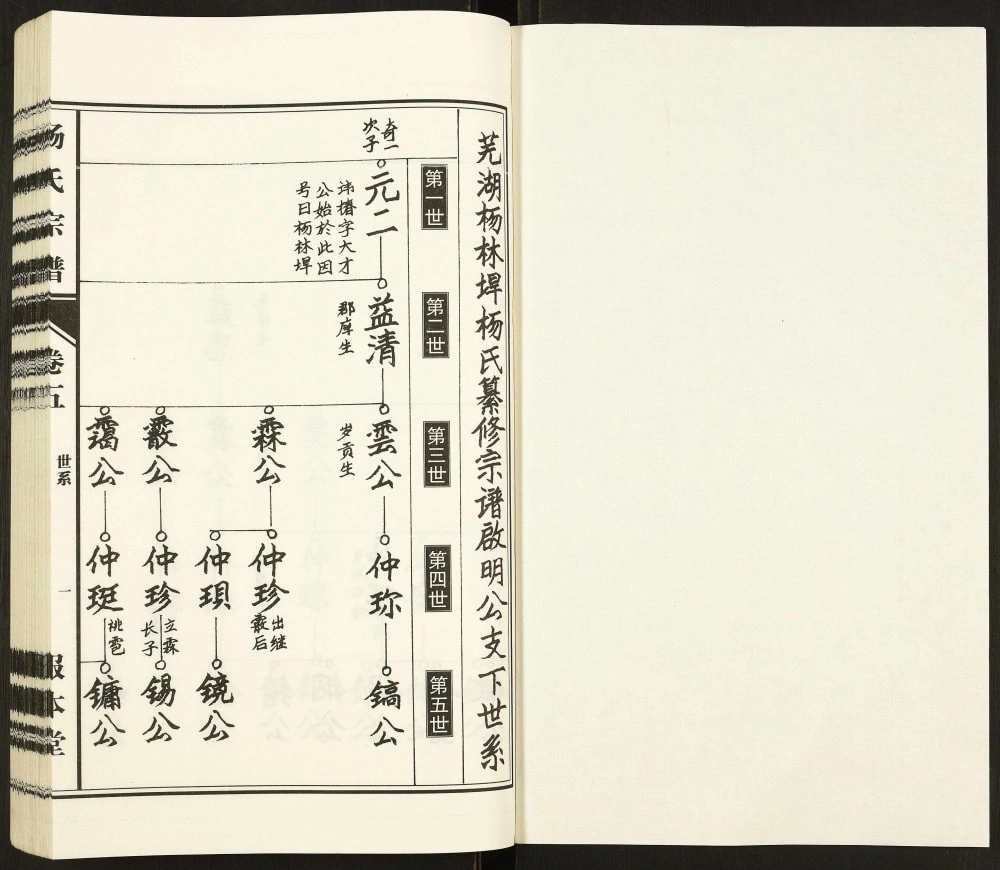 芜湖杨林垾杨氏纂修宗谱啟明公支下世系
第一世
第二世
第三世
第四世
第五世
奇一
次子
元二
讳椿字大才
公始於此因
号曰杨林垾
益清
郡庠生
雲公
岁贡生
仲珎
鎬公
霖公
仲珍
出继
霰后
仲珼
镜公
霰公
仲珍
立霖
长子
锡公
霭公
仲珽
祧雹
鏞公
杨氏宗谱
卷五
世系
一
报本堂